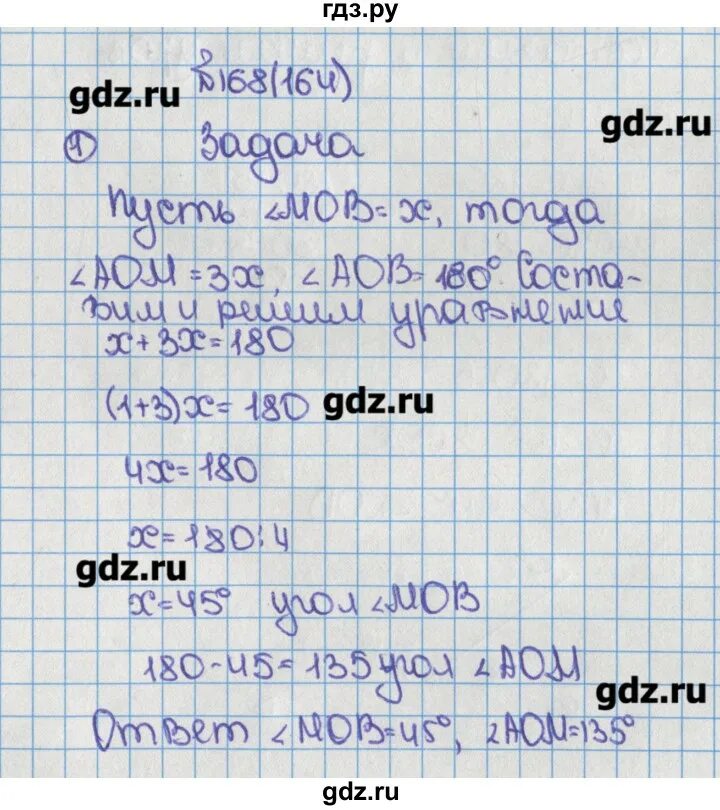 гдз.ру
№168(164)
gdz.ru
gdz.ru
① Задача
Пусть ∠MOB=x, тогда
∠AOM=3x, ∠AOB=180° Соста-
вим и решим уравнение
x+3x=180
(1+3)x=180
gdz.ru
4x=180
x=180:4
gdz.ru
x=45° угол ∠MOB
180-45=135 угол ∠AOM
gdz.ru
Ответ ∠MOB=45°, ∠AOM=135°
gdz.ru